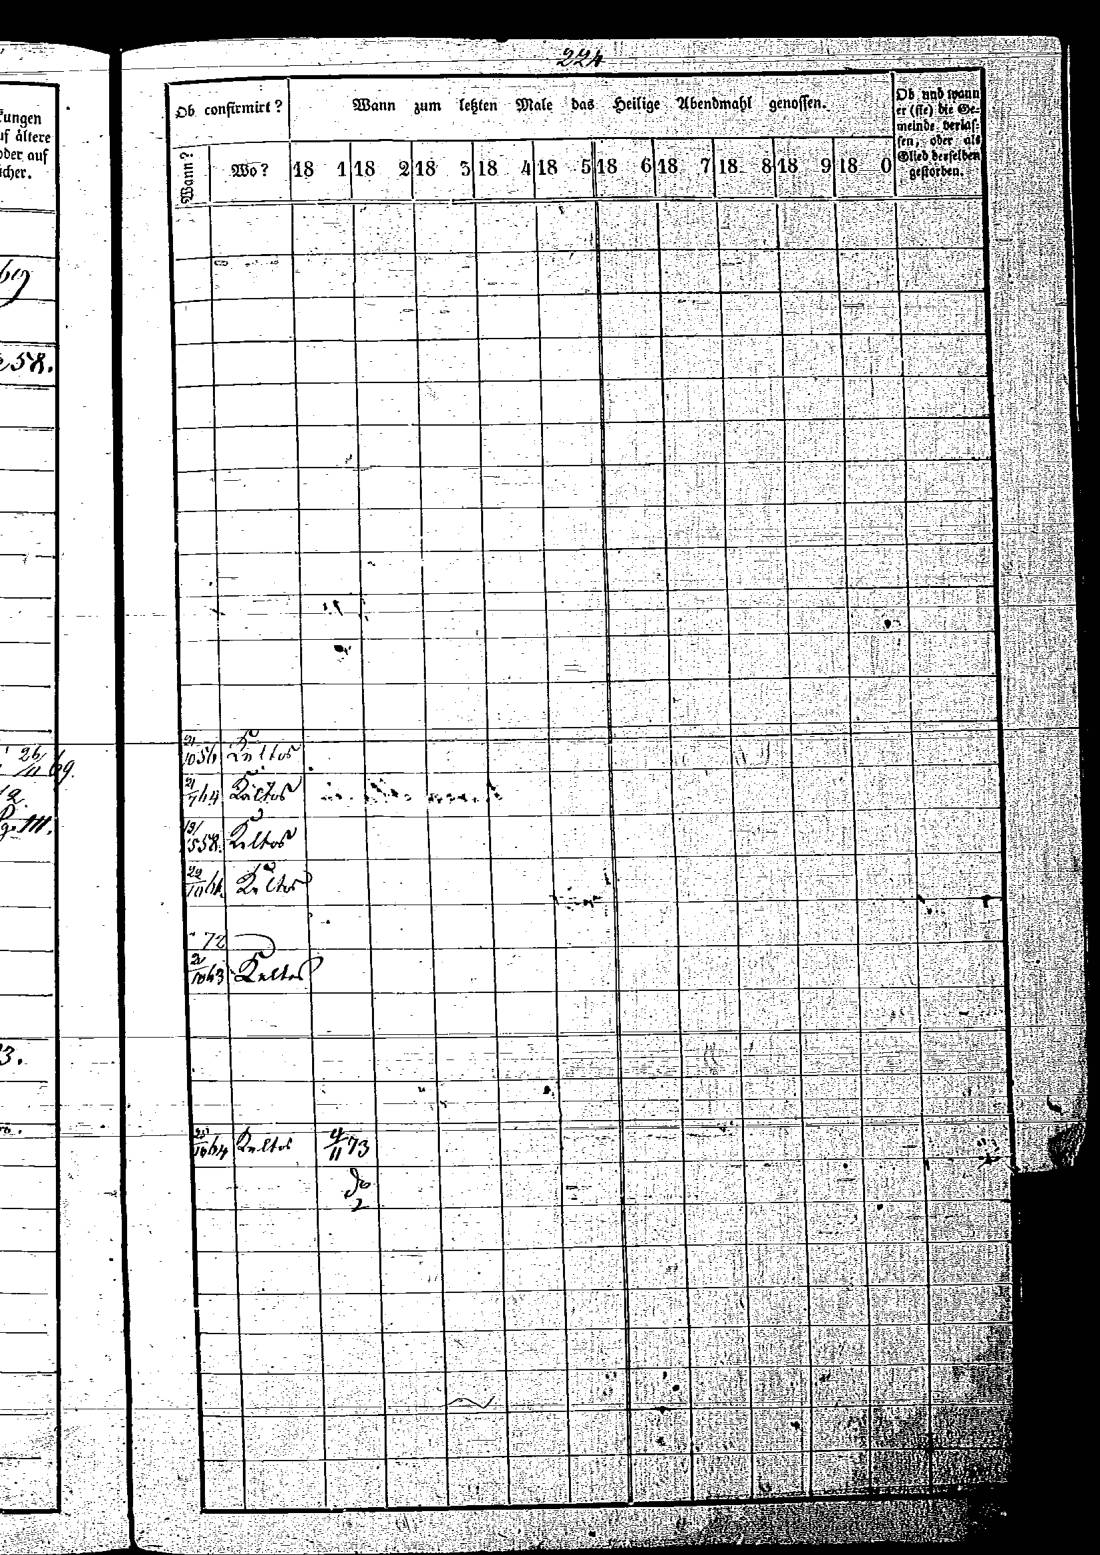 224
kungen
uf ältere
oder auf
icher.
58.
26/11 69.
Pg. III.
3.
Ob confirmirt?
Wann zum letzten Male das Heilige Abendmahl genossen.
Ob und wann
er (sie) die Ge-
meinde verlas-
sen, oder als
Glied derselben
gestorben.
Wann? Wo? 18 1 18 2 18 3 18 4 18 5 18 6 18 7 18 8 18 9 18 0
21/10 56 Keltos
21/7 64 Keltos
19/5 58. Keltos
Keltos
" 72
21/10 63 Keltos
25/10 64 Keltos 4/11 73
do
2